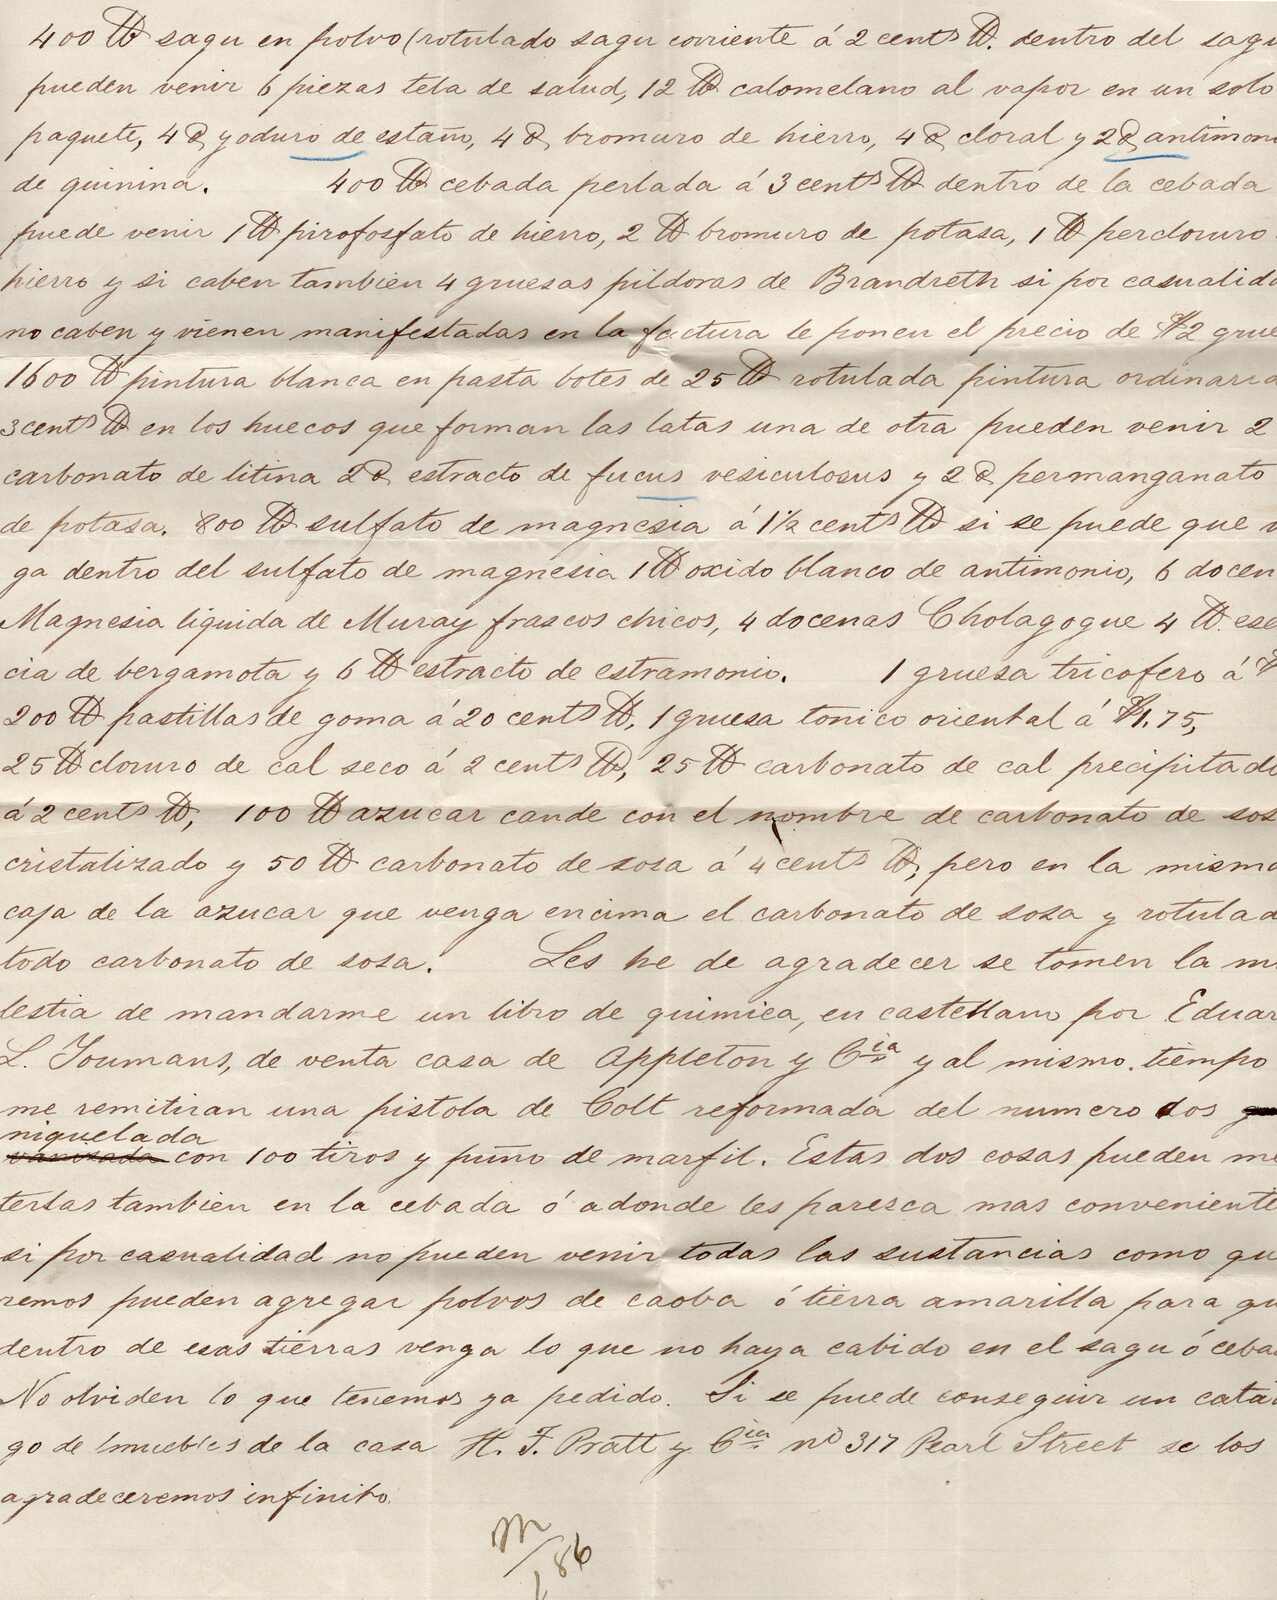 400 ℔ sagu en polvo (rotulado sagu corriente á 2 cents ℔. dentro del sagu
pueden venir 6 piezas tela de salud, 12 ℔ calomelano al vapor en un solo
paquete, 4 ℥ yoduro de estaño, 4 ℥ bromuro de hierro, 4 ℥ cloral y 2 ℥ antimoni
de quinina. 400 ℔ cebada perlada á 3 cents ℔ dentro de la cebada
puede venir 1 ℔ pirofosfato de hierro, 2 ℔ bromuro de potasa, 1 ℔ percloruro
hierro y si caben tambien 4 gruesas pildoras de Brandreth si por casualida
no caben y vienen manifestadas en la factura le ponen el precio de $2 grue
1600 ℔ pintura blanca en pasta botes de 25 ℔ rotulada pintura ordinaria
3 cents ℔ en los huecos que forman las latas una de otra pueden venir 2
carbonato de litina 2 ℥ estracto de fucus vesiculosus y 2 ℥ permanganato
de potasa. 800 ℔ sulfato de magnesia á 1½ cents ℔ si se puede que v
ga dentro del sulfato de magnesia 1 ℔ oxido blanco de antimonio, 6 docen
Magnesia liquida de Muray frascos chicos, 4 docenas Cholagogue 4 ℔. ese
cia de bergamota y 6 ℔ estracto de estramonio. 1 gruesa tricofero á $
200 ℔ pastillas de goma á 20 cents ℔, 1 gruesa tonico oriental á $1.75,
25 ℔ cloruro de cal seco á 2 cents ℔, 25 ℔ carbonato de cal precipitado
á 2 cents ℔, 100 ℔ azucar cande con el nombre de carbonato de sos
cristalizado y 50 ℔ carbonato de sosa á 4 cents ℔, pero en la misma
caja de la azucar que venga encima el carbonato de sosa y rotulad
todo carbonato de sosa. Les he de agradecer se tomen la m
lestia de mandarme un libro de quimica, en castellano por Eduar
L. Youmans, de venta casa de Appleton y Cia y al mismo. tiempo
me remitiran una pistola de Colt reformada del numero dos
niquelada
con 100 tiros y puño de marfil. Estas dos cosas pueden me
terlas tambien en la cebada ó adonde les paresca mas conveniente
si por casualidad no pueden venir todas las sustancias como que
remos pueden agregar polvos de caoba ó tierra amarilla para qu
dentro de esas tierras venga lo que no haya cabido en el sagu ó ceba
No olviden lo que tenemos ya pedido. Si se puede conseguir un catal
go de muebles de la casa H. F. Pratt y Cia no 317 Pearl Street se los
agradeceremos infinito.